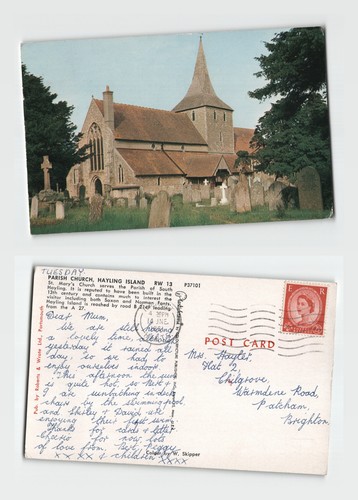 TUESDAY
PARISH CHURCH, HAYLING ISLAND RW 13
St. Mary's Church serves the Parish of South
Hayling. It is reputed to have been built in the
13th century and contains much to interest the
visitor including both Saxon and Norman fonts.
Hayling Island is reached by road B 2149 leading
from the A 27.
P37101
Pub. by Roberts & Wrate Ltd., Portsmouth
POST CARD
E R
Dear Mum,
We are all having
a lovely time,
yesterday it rained all
day, so we had to
enjoy ourselves indoors.
This afternoon the sun
is quite hot, so Bert &
I are sunbathing in deck
chairs by the swimming pool
and Shirley & David are
enjoying their first swim.
Thanks for cards & letter.
Cheerio for now, lots
of love from, Bert, Peggy
x x x & children xxxx
Mrs. Hayter,
Flat 2,
Chilgrove,
Warmdene Road,
Patcham,
Brighton.
Colour by W. Skipper